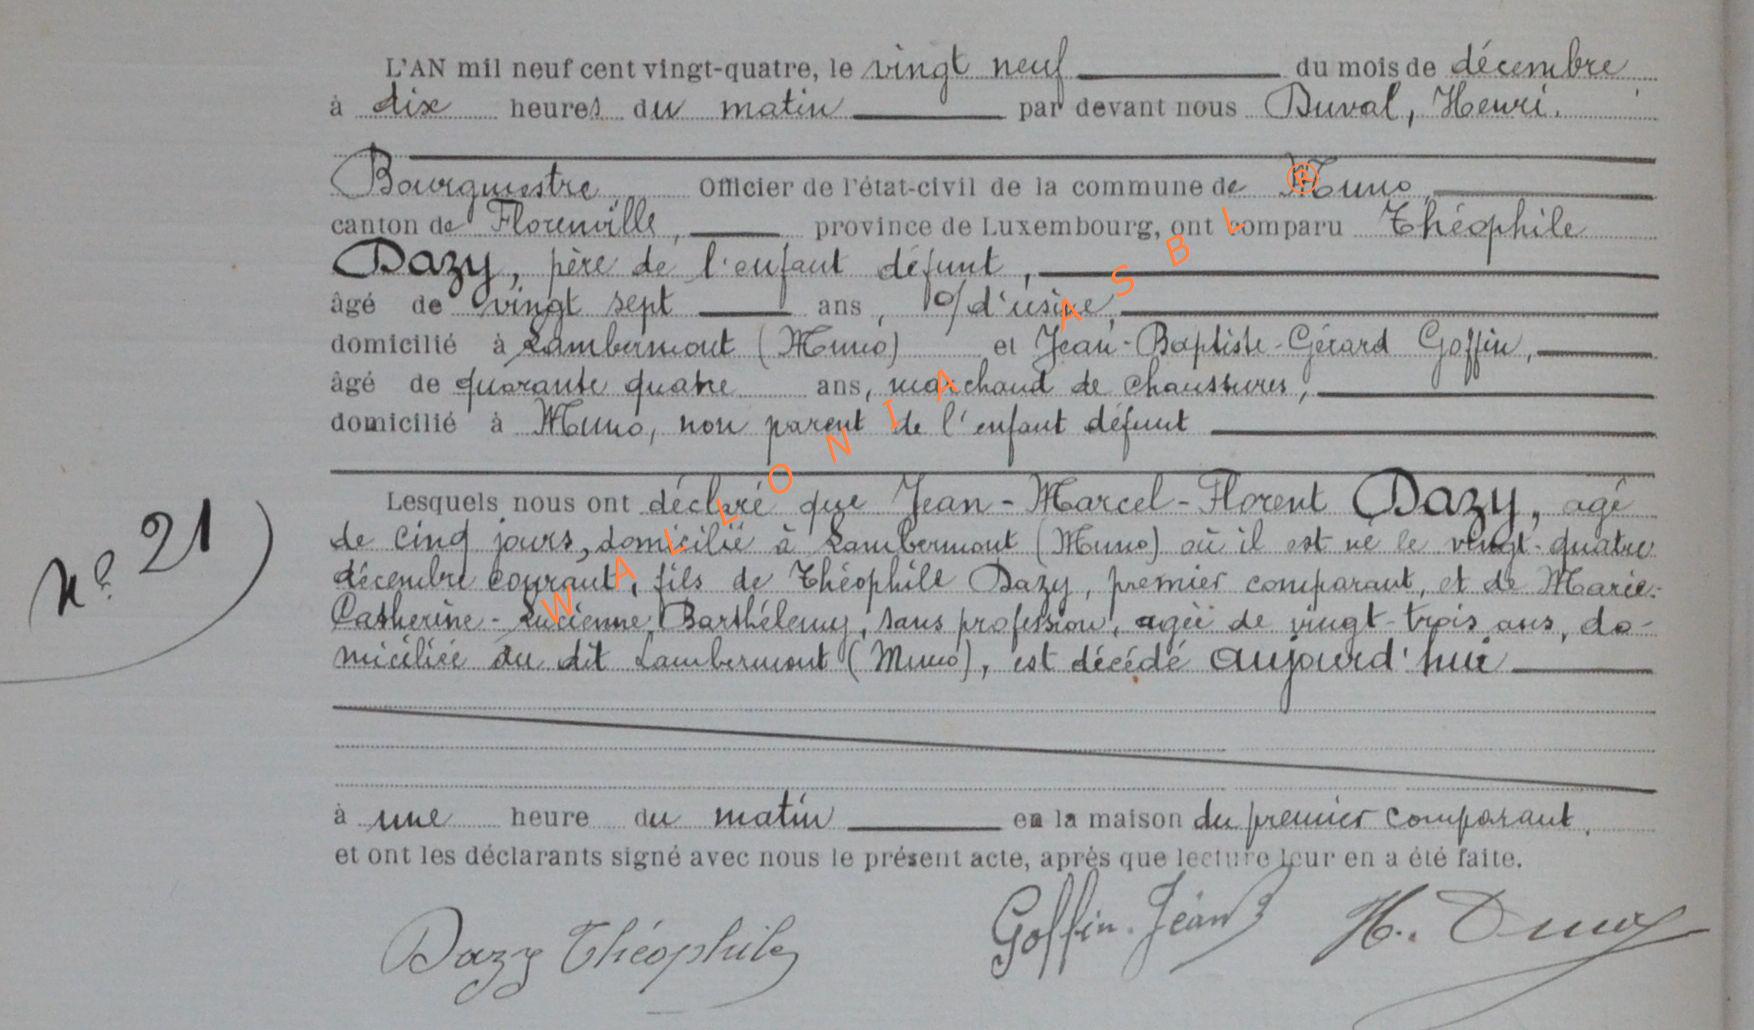 L'AN mil neuf cent vingt-quatre, le vingt neuf du mois de décembre
à dix heures du matin par devant nous Duval, Henri.
Bourgmestre, Officier de l'état-civil de la commune de Muno,
canton de Florenville, province de Luxembourg, ont comparu Théophile
Dazy, père de l'enfant défunt,
âgé de vingt sept ans, o/ d'usine,
domicilié à Lambermont (Muno) et Jean-Baptiste-Gérard Goffin,
âgé de quarante quatre ans, marchand de chaussures,
domicilié à Muno, non parent de l'enfant défunt
Lesquels nous ont déclaré que Jean-Marcel-Florent Dazy, agé
de cinq jours, domicilié à Lambermont (Muno) où il est né le vingt-quatre
décembre courant, fils de Théophile Dazy, premier comparant, et de Marie-
Catherine-Lucienne Barthélemy, sans profession, agée de vingt-trois ans, do-
miciliée au dit Lambermont (Muno), est décédé aujourd'hui
n° 21
à une heure du matin en la maison du premier comparant.
et ont les déclarants signé avec nous le présent acte, après que lecture leur en a été faite.
Dazy Théophile Goffin. Jean H. Duval
WALLONIA ASBL ®